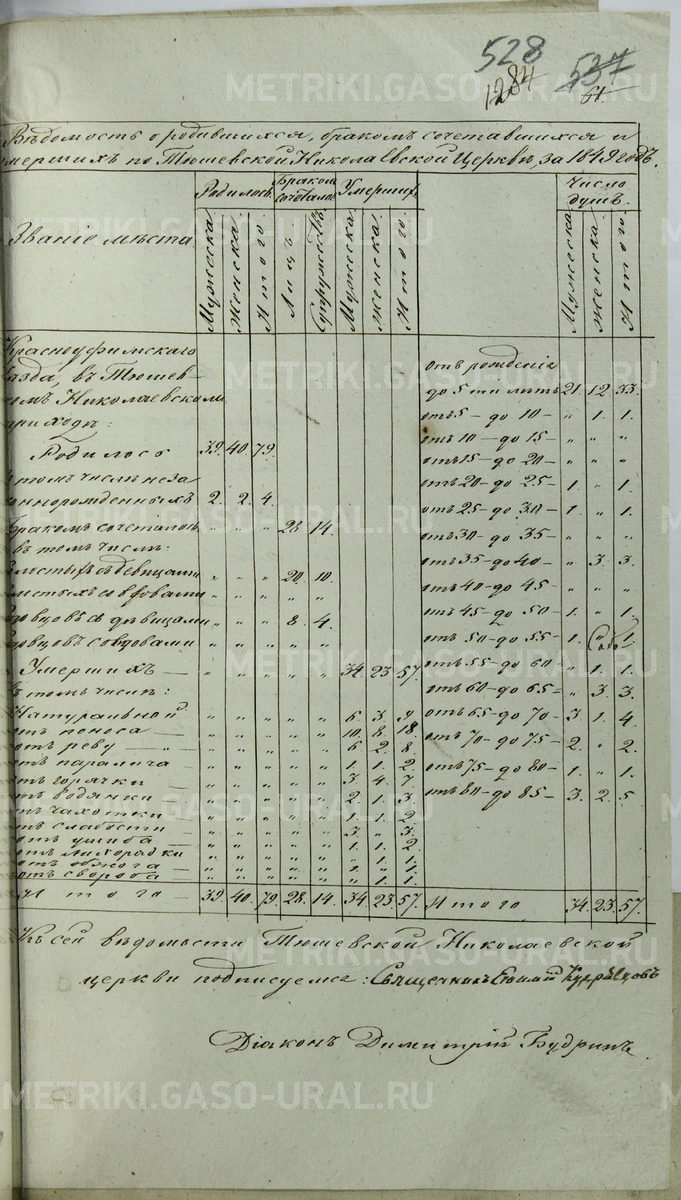 528
1284 537
61.
Вѣдомость о родившихся, бракомъ сочетавшихся и
умершихъ по Тюшевской Николаевской Церкве, за 1849 годъ.
Званіе мѣста
Родилось
Бракомъ сочетало
Умершихъ
Число душъ
Мужеска Женска Итого Лицъ Супружествъ Мужеска Женска Итого Мужеска Женска Итого
Красноуфимскаго
уѣзда, въ Тюшев-
скомъ Николаевскомъ
приходѣ:
Родилось 39. 40. 79.
въ томъ числѣ неза
коннорожденныхъ 2. 2. 4.
Бракомъ сочеталось " " " 28. 14.
въ томъ числѣ:
холостыхъ съ дѣвицами " " " 20. 10.
холостыхъ со вдовами " " " " "
вдовцовъ съ дѣвицами " " " 8. 4.
вдовцовъ со вдовами " " " " "
Умершихъ — " " " " " 34. 23. 57.
въ томъ числѣ:
Натуральной " " " " " 6. 3. 9
отъ поноса — " " " " " 10. 8. 18.
отъ реву — " " " " " 6 2. 8.
отъ паралича — " " " " " 1. 1. 2
отъ горячки — " " " " " 3. 4. 7
отъ водянки " " " " " 2. 1. 3.
отъ чахотки " " " " " 1. 1. 2
отъ слабости " " " " " 3. " 3.
отъ ушиба — " " " " " 1. 1. 2
отъ лихорадки " " " " " " 1. 1.
отъ обжога — " " " " " 1. " 1.
отъ свороба " " " " " " 1. 1.
Итого — 39. 40. 79. 28. 14. 34. 23. 57.
отъ рожденія
до 5ти лѣтъ 21. 12. 33.
отъ 5 — до 10 — " 1. 1.
отъ 10 — до 15 — " " "
отъ 15 — до 20 — " " "
отъ 20 — до 25 — 1. " 1.
отъ 25 — до 30 — 1. " 1.
отъ 30 — до 35 — " " "
отъ 35 — до 40 — " 3. 3.
отъ 40 — до 45 — " " "
отъ 45 — до 50 — 1. " 1.
отъ 50 — до 55 — 1. 1.
отъ 55 — до 60 — " 1. 1.
отъ 60 — до 65 — " 3. 3.
отъ 65 — до 70 — 3. 1. 4.
отъ 70 — до 75 — 2. " 2.
отъ 75 — до 80 — 1. " 1.
отъ 80 — до 85 — 3. 2. 5
Итого 34. 23. 57.
Къ сей вѣдомости Тюшевской Николаевской
церкви подписуемся: Священникъ Евфимій Кудрявцовъ
Діаконъ Димитрій Будринъ.
METRIKI.GASO-URAL.RU